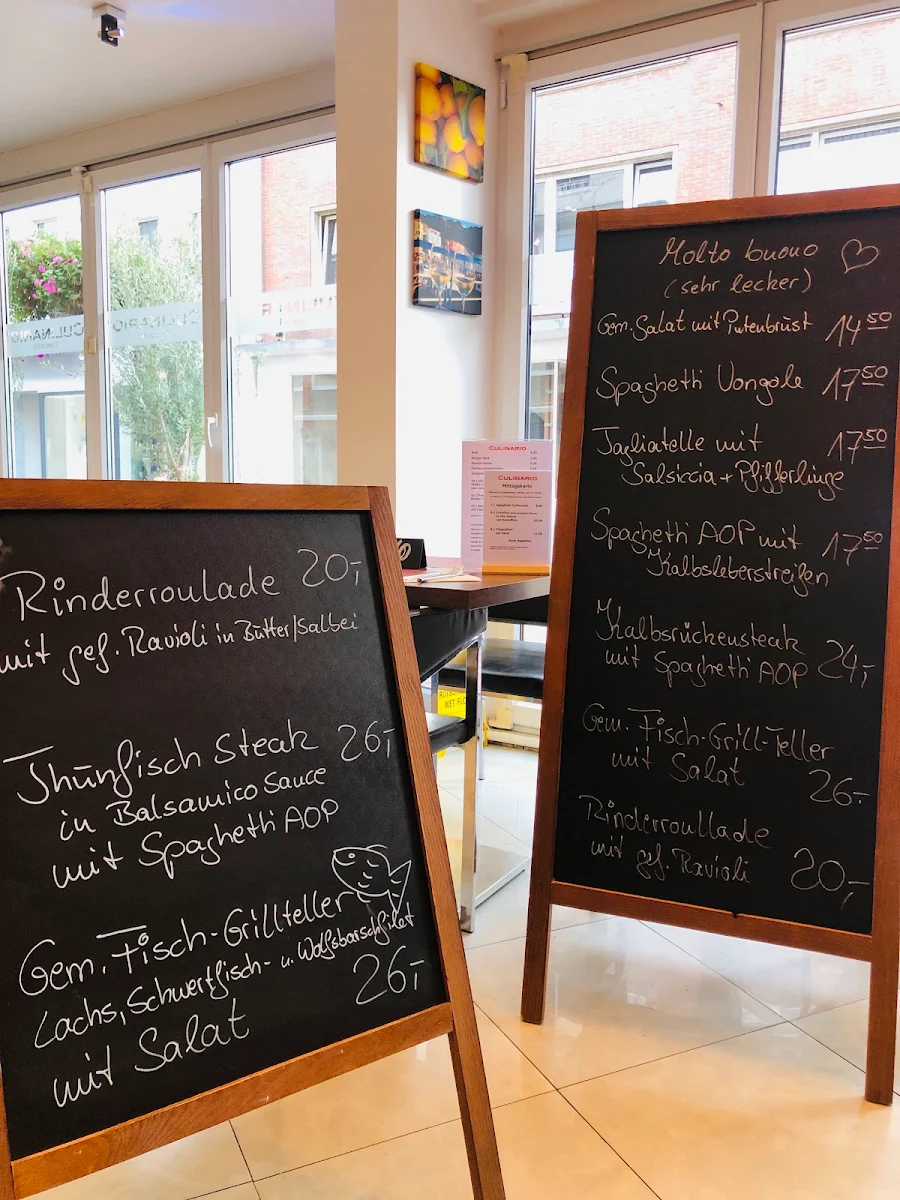 Rinderroulade 20,-
mit gef. Ravioli in Butter/Salbei
Thunfisch Steak 26,-
in Balsamico Sauce
mit Spaghetti AOP
Gem. Fisch-Grillteller
Lachs, Schwertfisch- u. Wolfsbarschfilet
mit Salat 26,-
Molto buono
(sehr lecker)
Gem. Salat mit Putenbrust 14 50
Spaghetti Vongole 17 50
Tagliatelle mit 17 50
Salsiccia + Pfifferlinge
Spaghetti AOP mit 17 50
Kalbsleberstreifen
Kalbsrückensteak
mit Spaghetti AOP 24,-
Gem. Fisch-Grill-Teller
mit Salat 26,-
Rinderroullade
mit gef. Ravioli 20,-
CULINARIO
CULINARIO
Mittagskarte
CULINARIO
CULINARIO
WET FLO